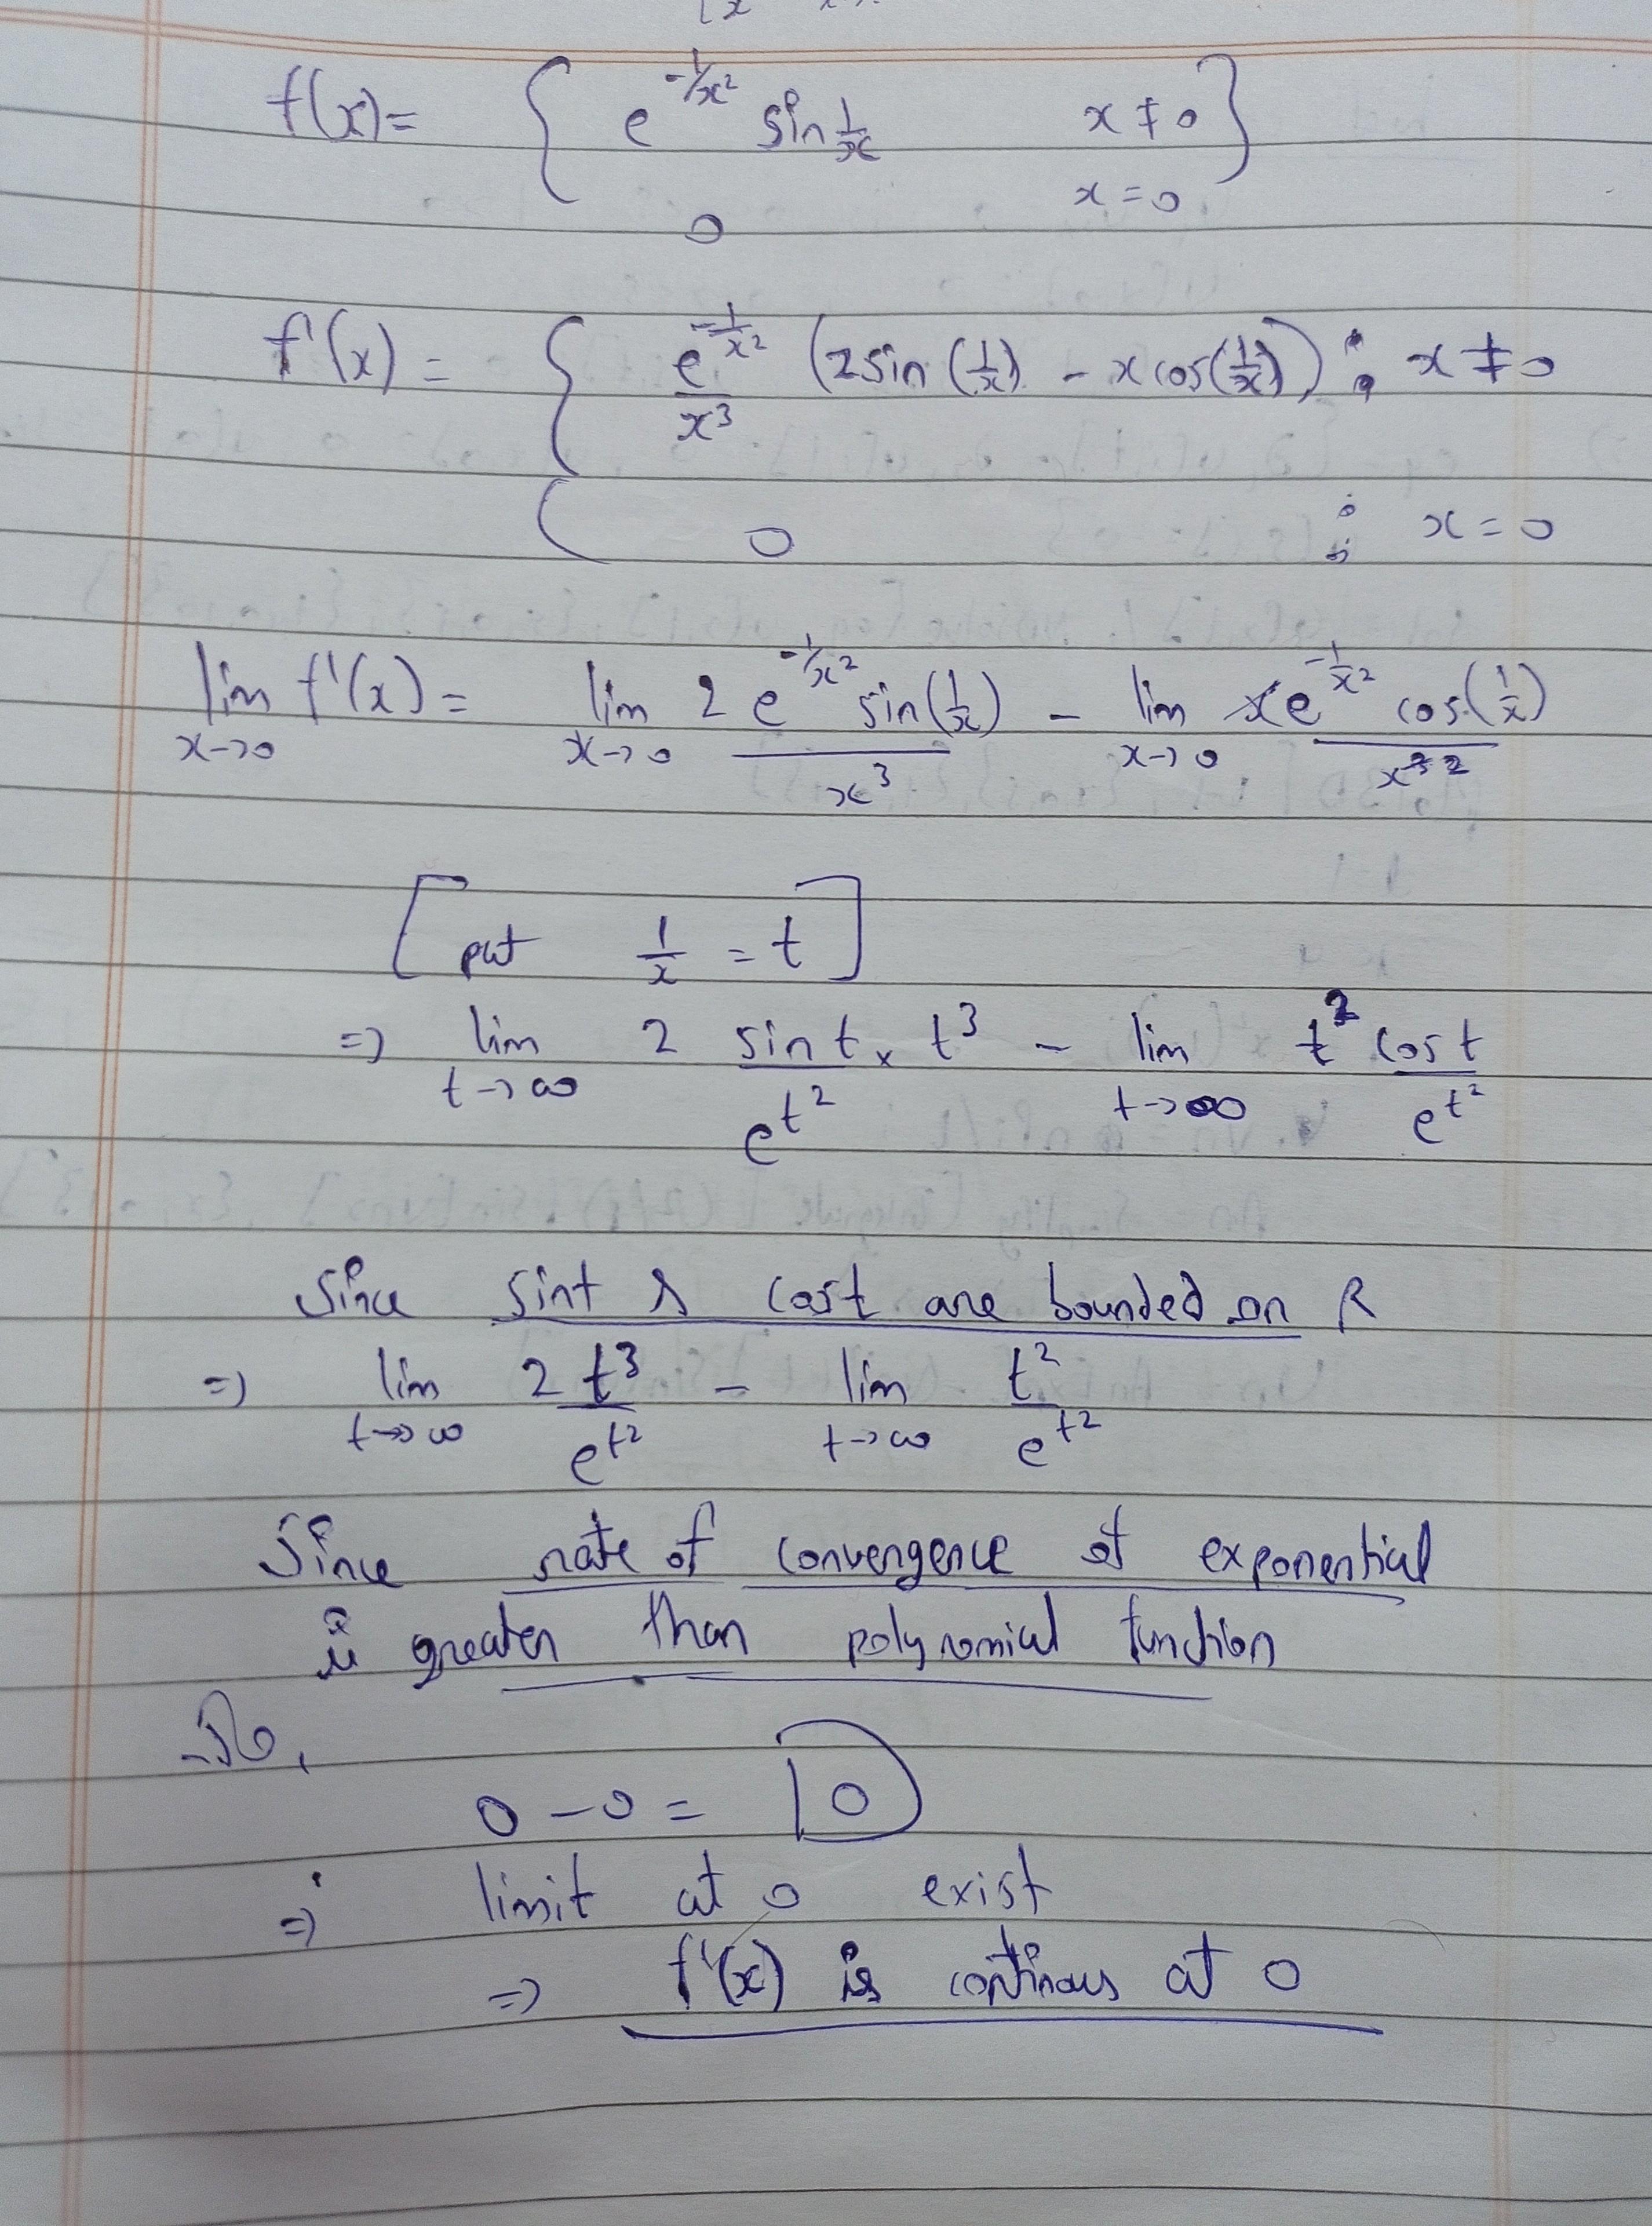 f(x) = { e^{-1/x²} sin 1/x x ≠ 0 }
0 x = 0
f'(x) = { e^{-1/x²}/x³ (2sin(1/x) - x cos(1/x)) ; x ≠ 0
0 ; x = 0
lim_{x→0} f'(x) = lim_{x→0} 2 e^{-1/x²} sin(1/x) / x³ - lim_{x→0} x e^{-1/x²} cos(1/x) / x^{2}
[put 1/x = t]
⇒ lim_{t→∞} 2 sint × t³ / e^{t²} - lim_{t→∞} t² cost / e^{t²}
Since sint & cost are bounded on R
⇒ lim_{t→∞} 2t³/e^{t²} - lim_{t→∞} t²/e^{t²}
Since rate of convergence of exponential
is greater than polynomial function
So,
0 - 0 = 0
⇒ limit at 0 exist
⇒ f'(x) is continous at 0